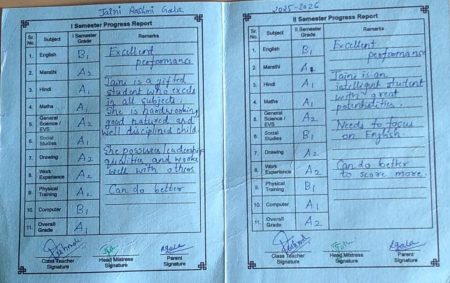 Jaini Rashmi Gala
I Semester Progress Report
Sr. No. Subject I Semester Grade Remarks
1. English B1 Excellent
performance
2. Marathi A2
Jaini is a gifted
3. Hindi A1 student who excels
in all subjects.
4. Maths A1 She is hardworking,
5. General Science / EVS A2 good natured and
well disciplined child.
6. Social Studies A1
She possesses leadership
7. Drawing A2 qualities and works
8. Work Experience A2 well with others
9. Physical Training A2 Can do better
10. Computer B1
11. Overall Grade A1
Class Teacher Signature
Head Mistress Signature
Parent Signature
2025-2026
II Semester Progress Report
Sr. No. Subject II Semester Grade Remarks
1. English B1 Excellent
performance
2. Marathi
Jaini is an
3. Hindi A1 intelligent student
with great
4. Maths A1 potentialities.
5. General Science / EVS A2
Needs to focus
6. Social Studies B1 on English
7. Drawing A2
8. Work Experience A2 Can do better
to score more.
9. Physical Training B1
10. Computer A1
11. Overall Grade A2
Class Teacher Signature
Head Mistress Signature
Parent Signature